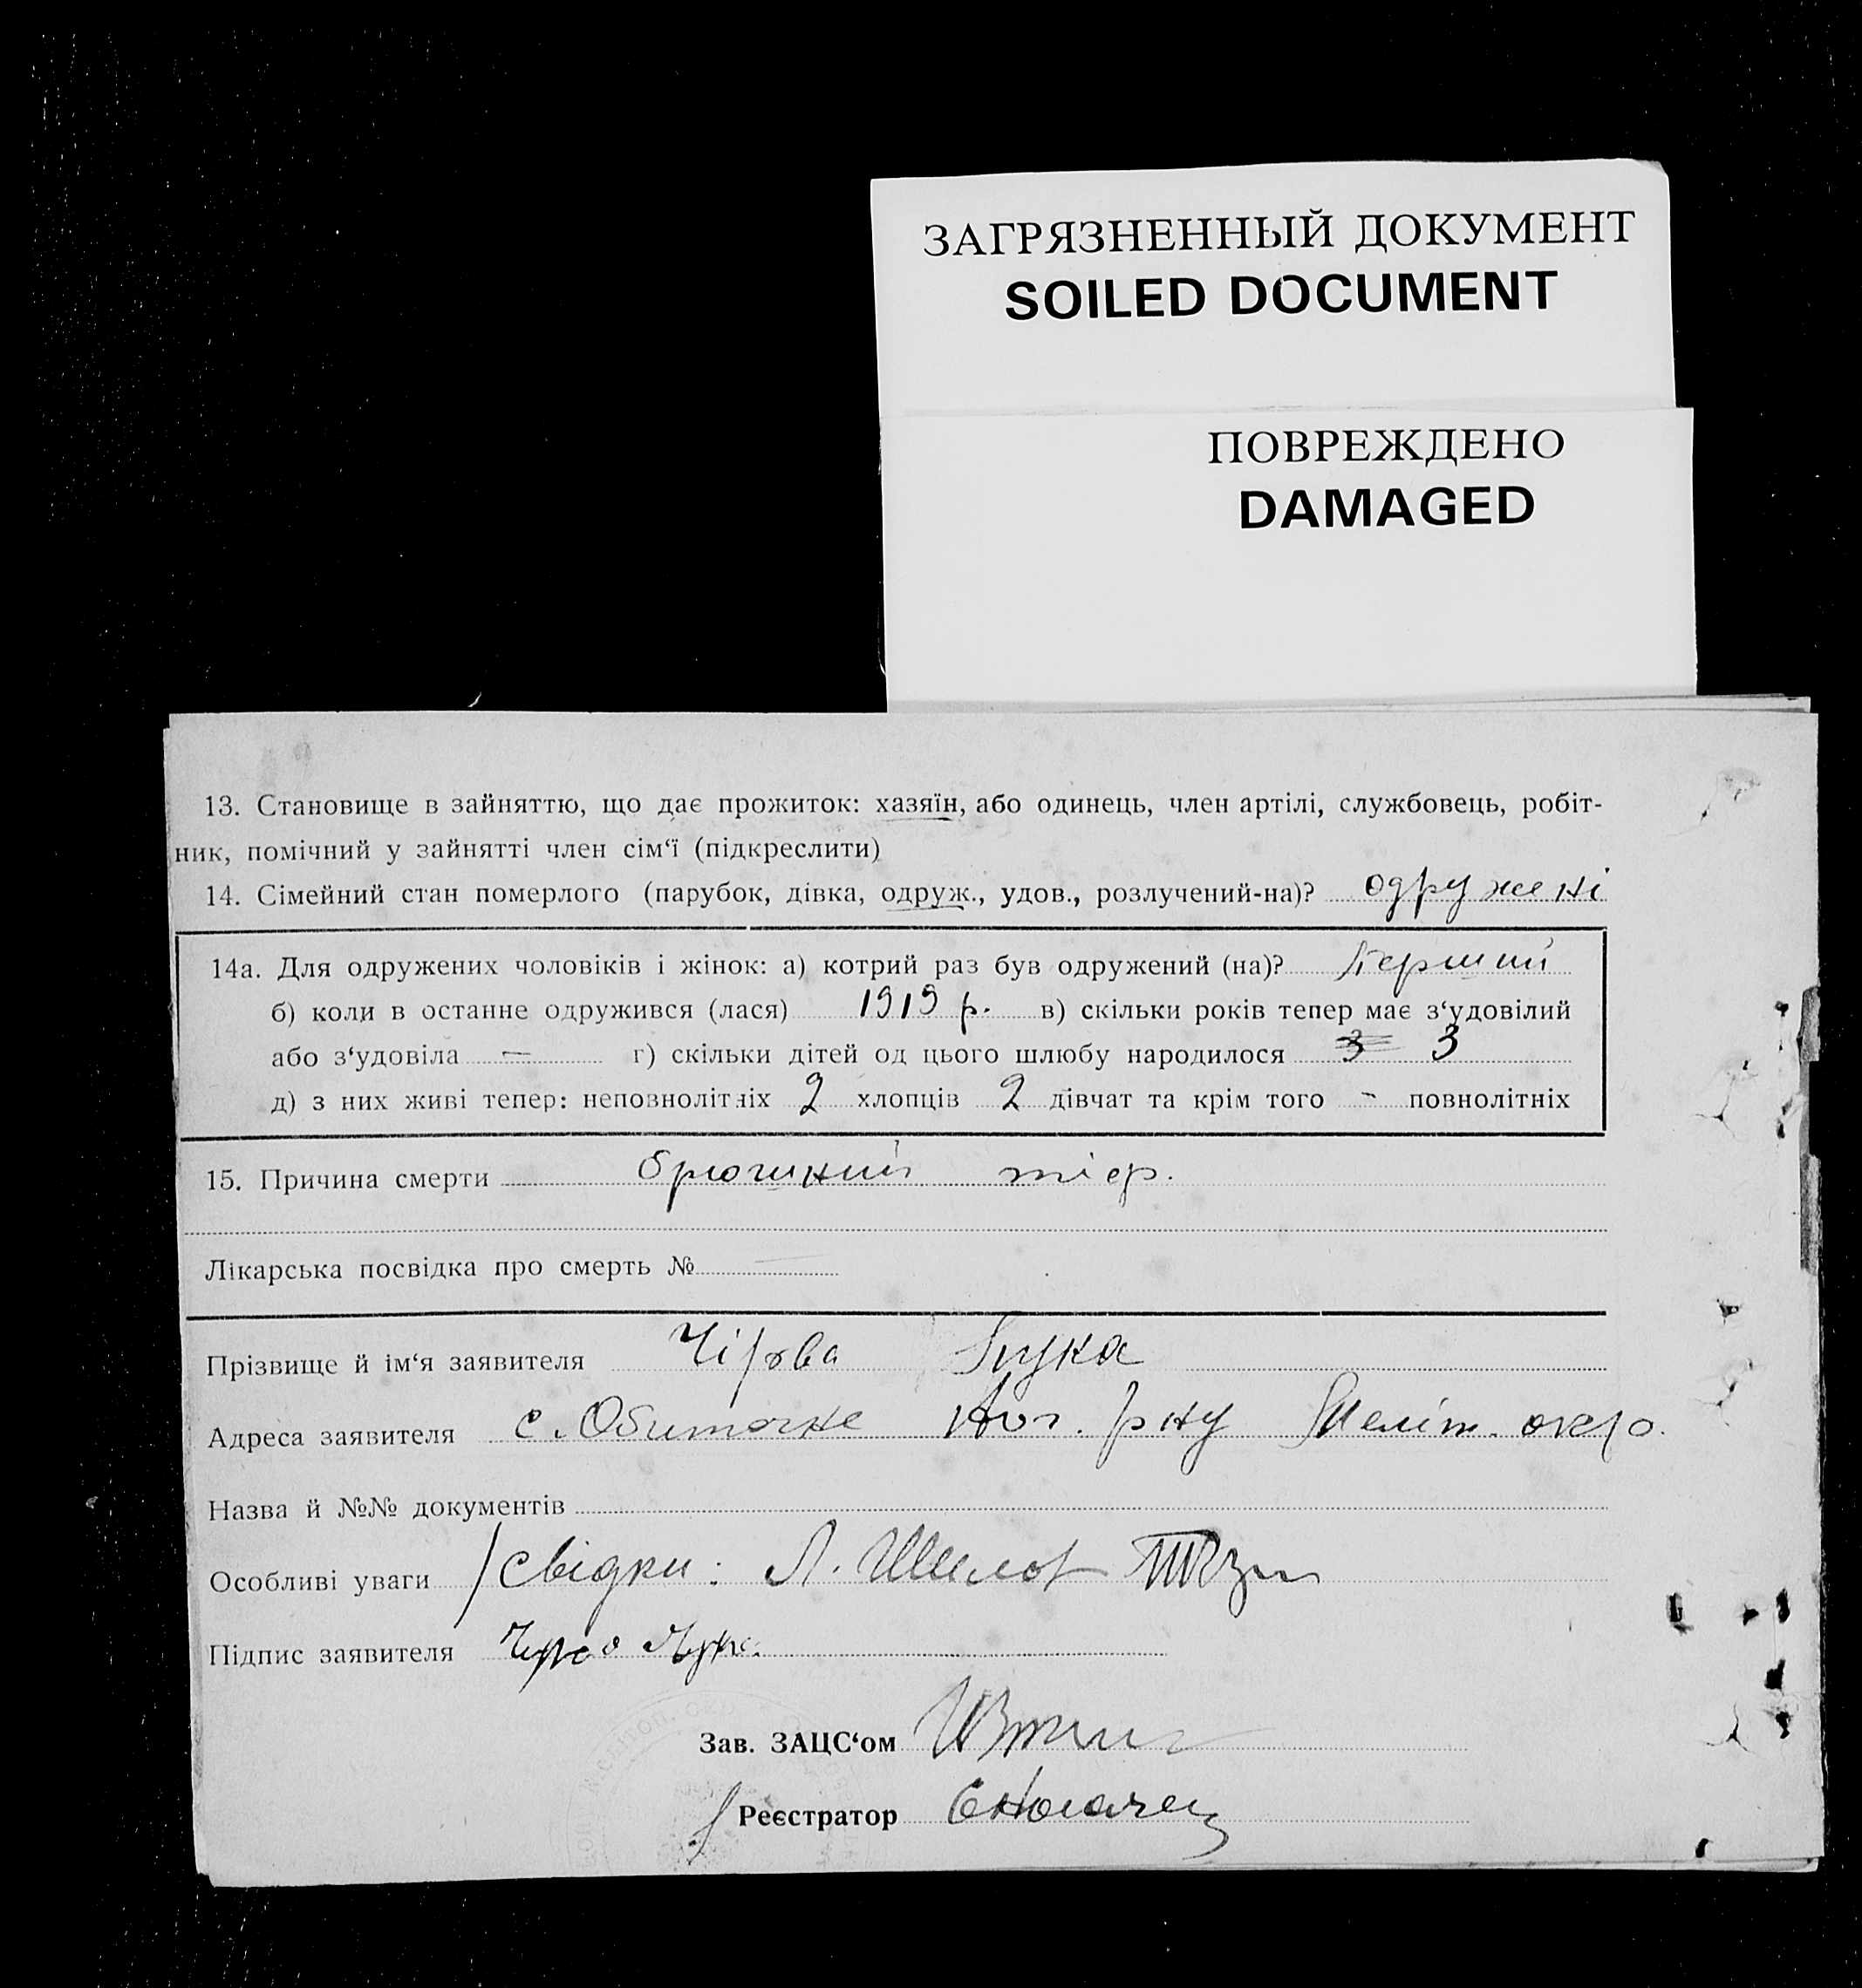 ЗАГРЯЗНЕННЫЙ ДОКУМЕНТ
SOILED DOCUMENT
ПОВРЕЖДЕНО
DAMAGED
13. Становище в зайняттю, що дає прожиток: хазяїн, або одинець, член артілі, службовець, робіт-
ник, помічний у зайнятті член сім‘ї (підкреслити)
14. Сімейний стан померлого (парубок, дівка, одруж., удов., розлучений-на)? одружені
14а. Для одружених чоловіків і жінок: а) котрий раз був одружений (на)? Перший
б) коли в останне одружився (лася) 1919 р. в) скільки років тепер має з‘удовілий
або з‘удовіла — г) скільки дітей од цього шлюбу народилося 3 3
д) з них живі тепер: неповнолітніх 2 хлопців 2 дівчат та крім того - повнолітніх
15. Причина смерти брюшний тіф.
Лікарська посвідка про смерть № —
Прізвище й ім‘я заявителя Лука
Адреса заявителя с. Обиточне Ног. р-ну Меліт. окр.
Назва й №№ документів
Особливі уваги Свідки: Л. Шилов
Підпис заявителя
Зав. ЗАЦС‘ом
Реєстратор